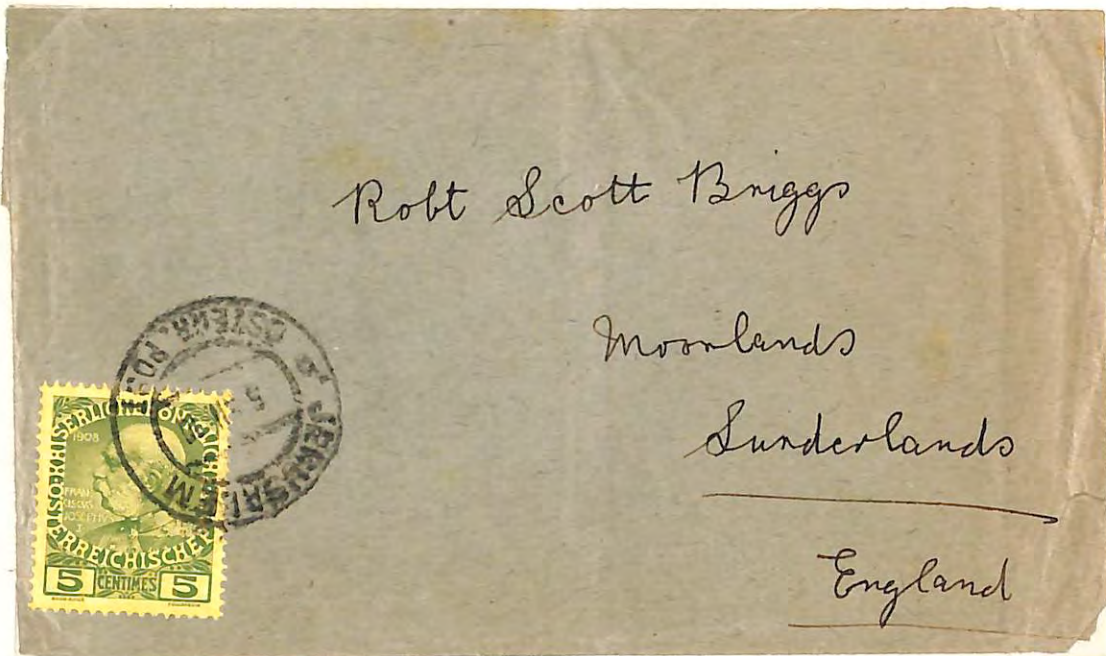 Robt Scott Briggs
Moorlands
Sunderlands
England
JERUSALEM
ÖSTERR. POST
KAISERLICHE KÖNIGLICHE ÖSTERREICHISCHE POST
1908
FRAN
CISCVS
IOSEPHVS
I
5 CENTIMES 5